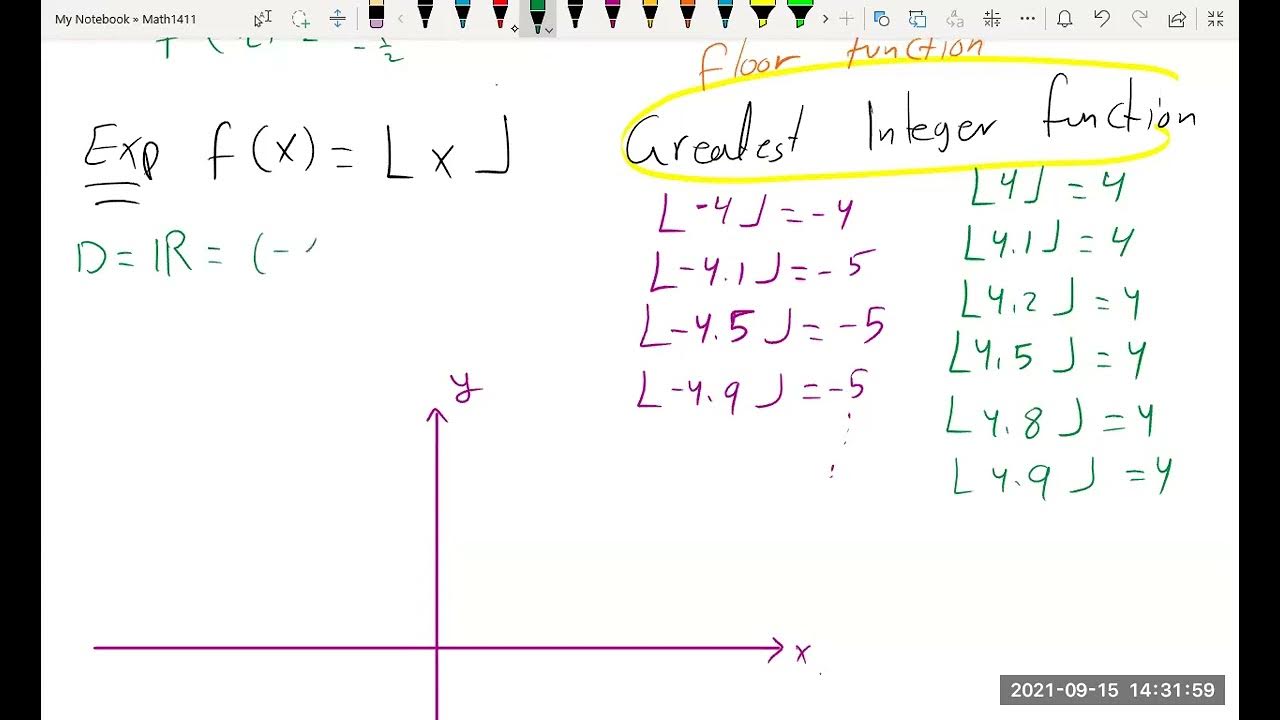 My Notebook » Math1411
- 1/2
floor function
Greatest Integer function
Exp f(x) = ⌊ x ⌋
D = ℝ = (-
⌊-4⌋ = -4
⌊-4.1⌋ = -5
⌊-4.5⌋ = -5
⌊-4.9⌋ = -5
⌊4⌋ = 4
⌊4.1⌋ = 4
⌊4.2⌋ = 4
⌊4.5⌋ = 4
⌊4.8⌋ = 4
⌊4.9⌋ = 4
y
x
2021-09-15 14:31:59